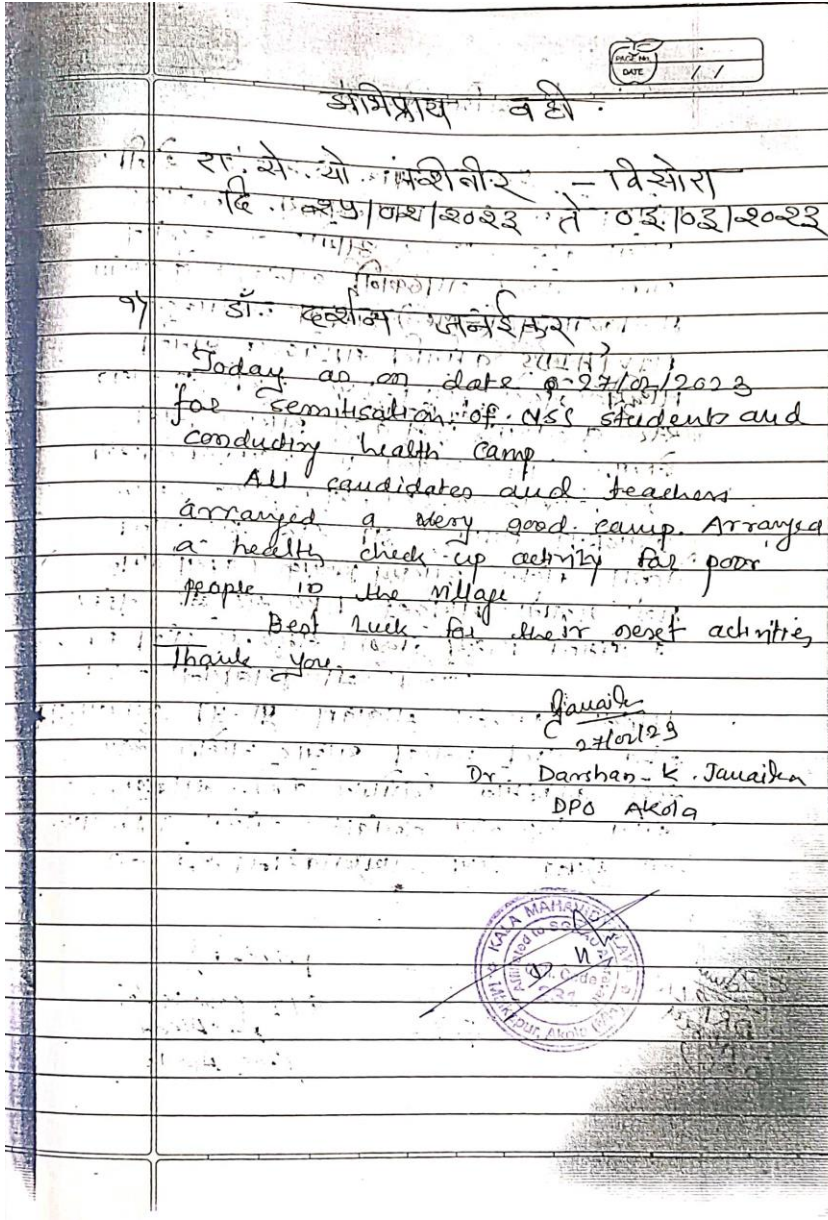 PAGE No.
DATE / /
अभिप्राय वही.
रा. से. यो. - विसोरा
दि. २५/०२/२०२३ ते ०३/०३/२०२३
१) डॉ. दर्शन जनईकर
Today as on date 27/02/2023
for semitisation of NSS students and
conducting health camp.
All candidates and teachers
arranged a very good camp. Arranged
a health check up activity for poor
people in the village.
Best Luck for their next activities
Thank you.
27/02/23
Dr. Darshan K. Janaikar
DPO Akola
KALA MAHAVIDYALAYA
Affiliated to
Code
Akola